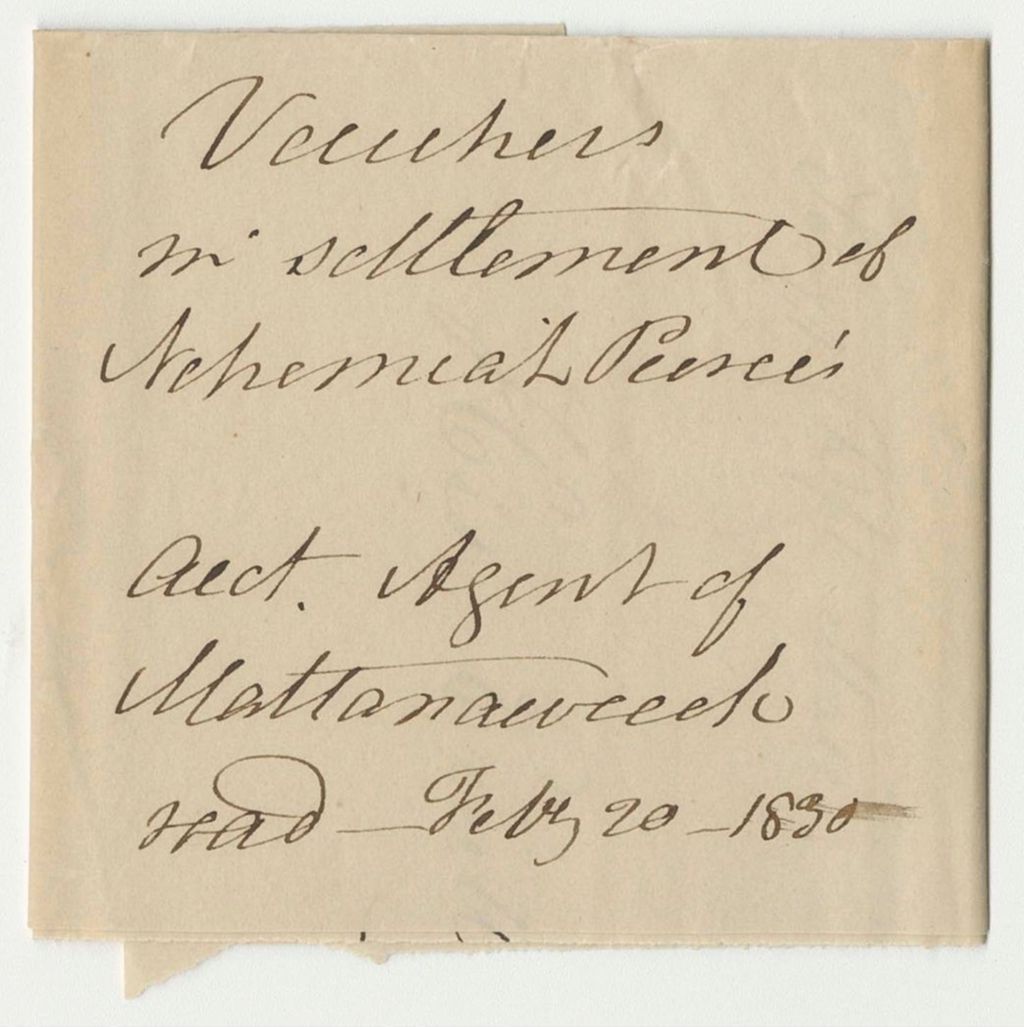 Vouchers
in settlement of
Nehemiah Pierce's
Acct. Agent of
Mattanawcook
road — Feby 20 — 1830